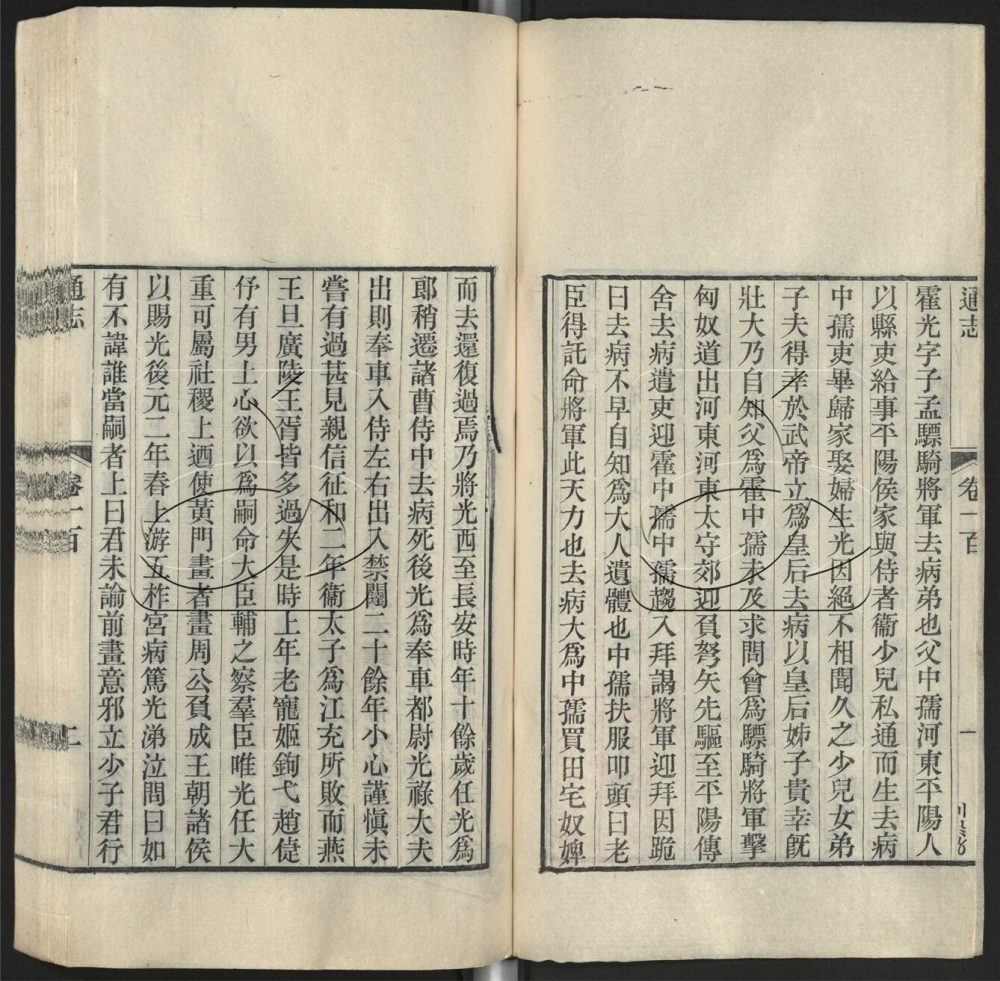 通志
卷一百
一
霍光字子孟驃騎將軍去病弟也父中孺河東平陽人
以縣吏給事平陽侯家與侍者衞少兒私通而生去病
中孺吏畢歸家娶婦生光因絕不相聞久之少兒女弟
子夫得幸於武帝立爲皇后去病以皇后姊子貴幸旣
壯大乃自知父爲霍中孺未及求問會爲驃騎將軍擊
匈奴道出河東河東太守郊迎負弩矢先驅至平陽傳
舍去病遣吏迎霍中孺中孺趨入拜謁將軍迎拜因跪
曰去病不早自知爲大人遺體也中孺扶服叩頭曰老
臣得託命將軍此天力也去病大爲中孺買田宅奴婢
而去還復過焉乃將光西至長安時年十餘歲任光爲
郎稍遷諸曹侍中去病死後光爲奉車都尉光祿大夫
出則奉車入侍左右出入禁闥二十餘年小心謹愼未
嘗有過甚見親信征和二年衞太子爲江充所敗而燕
王旦廣陵王胥皆多過失是時上年老寵姬鉤弋趙倢
伃有男上心欲以爲嗣命大臣輔之察羣臣唯光任大
重可屬社稷上迺使黃門畫者畫周公負成王朝諸侯
以賜光後元二年春上游五柞宮病篤光涕泣問曰如
有不諱誰當嗣者上曰君未諭前畫意邪立少子君行
通志
卷一百
二